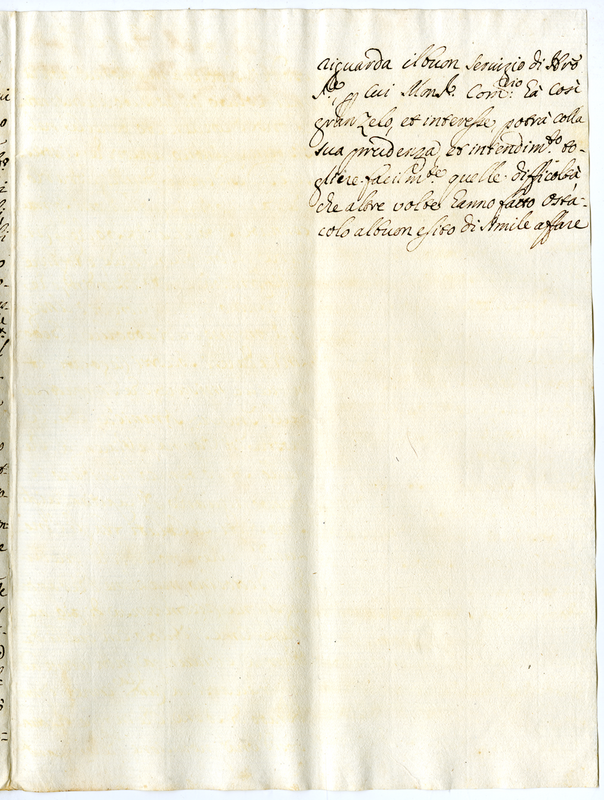 riguarda il buon servizio di Nro
Sre, p cui Monsr. Comrio. hà così
gran zelo, et interesse, potrà colla
sua prudenza, et intendimto. to-
gliere facilmte. quelle difficoltà
che altre volte hanno fatto osta-
colo al buon esito di simile affare